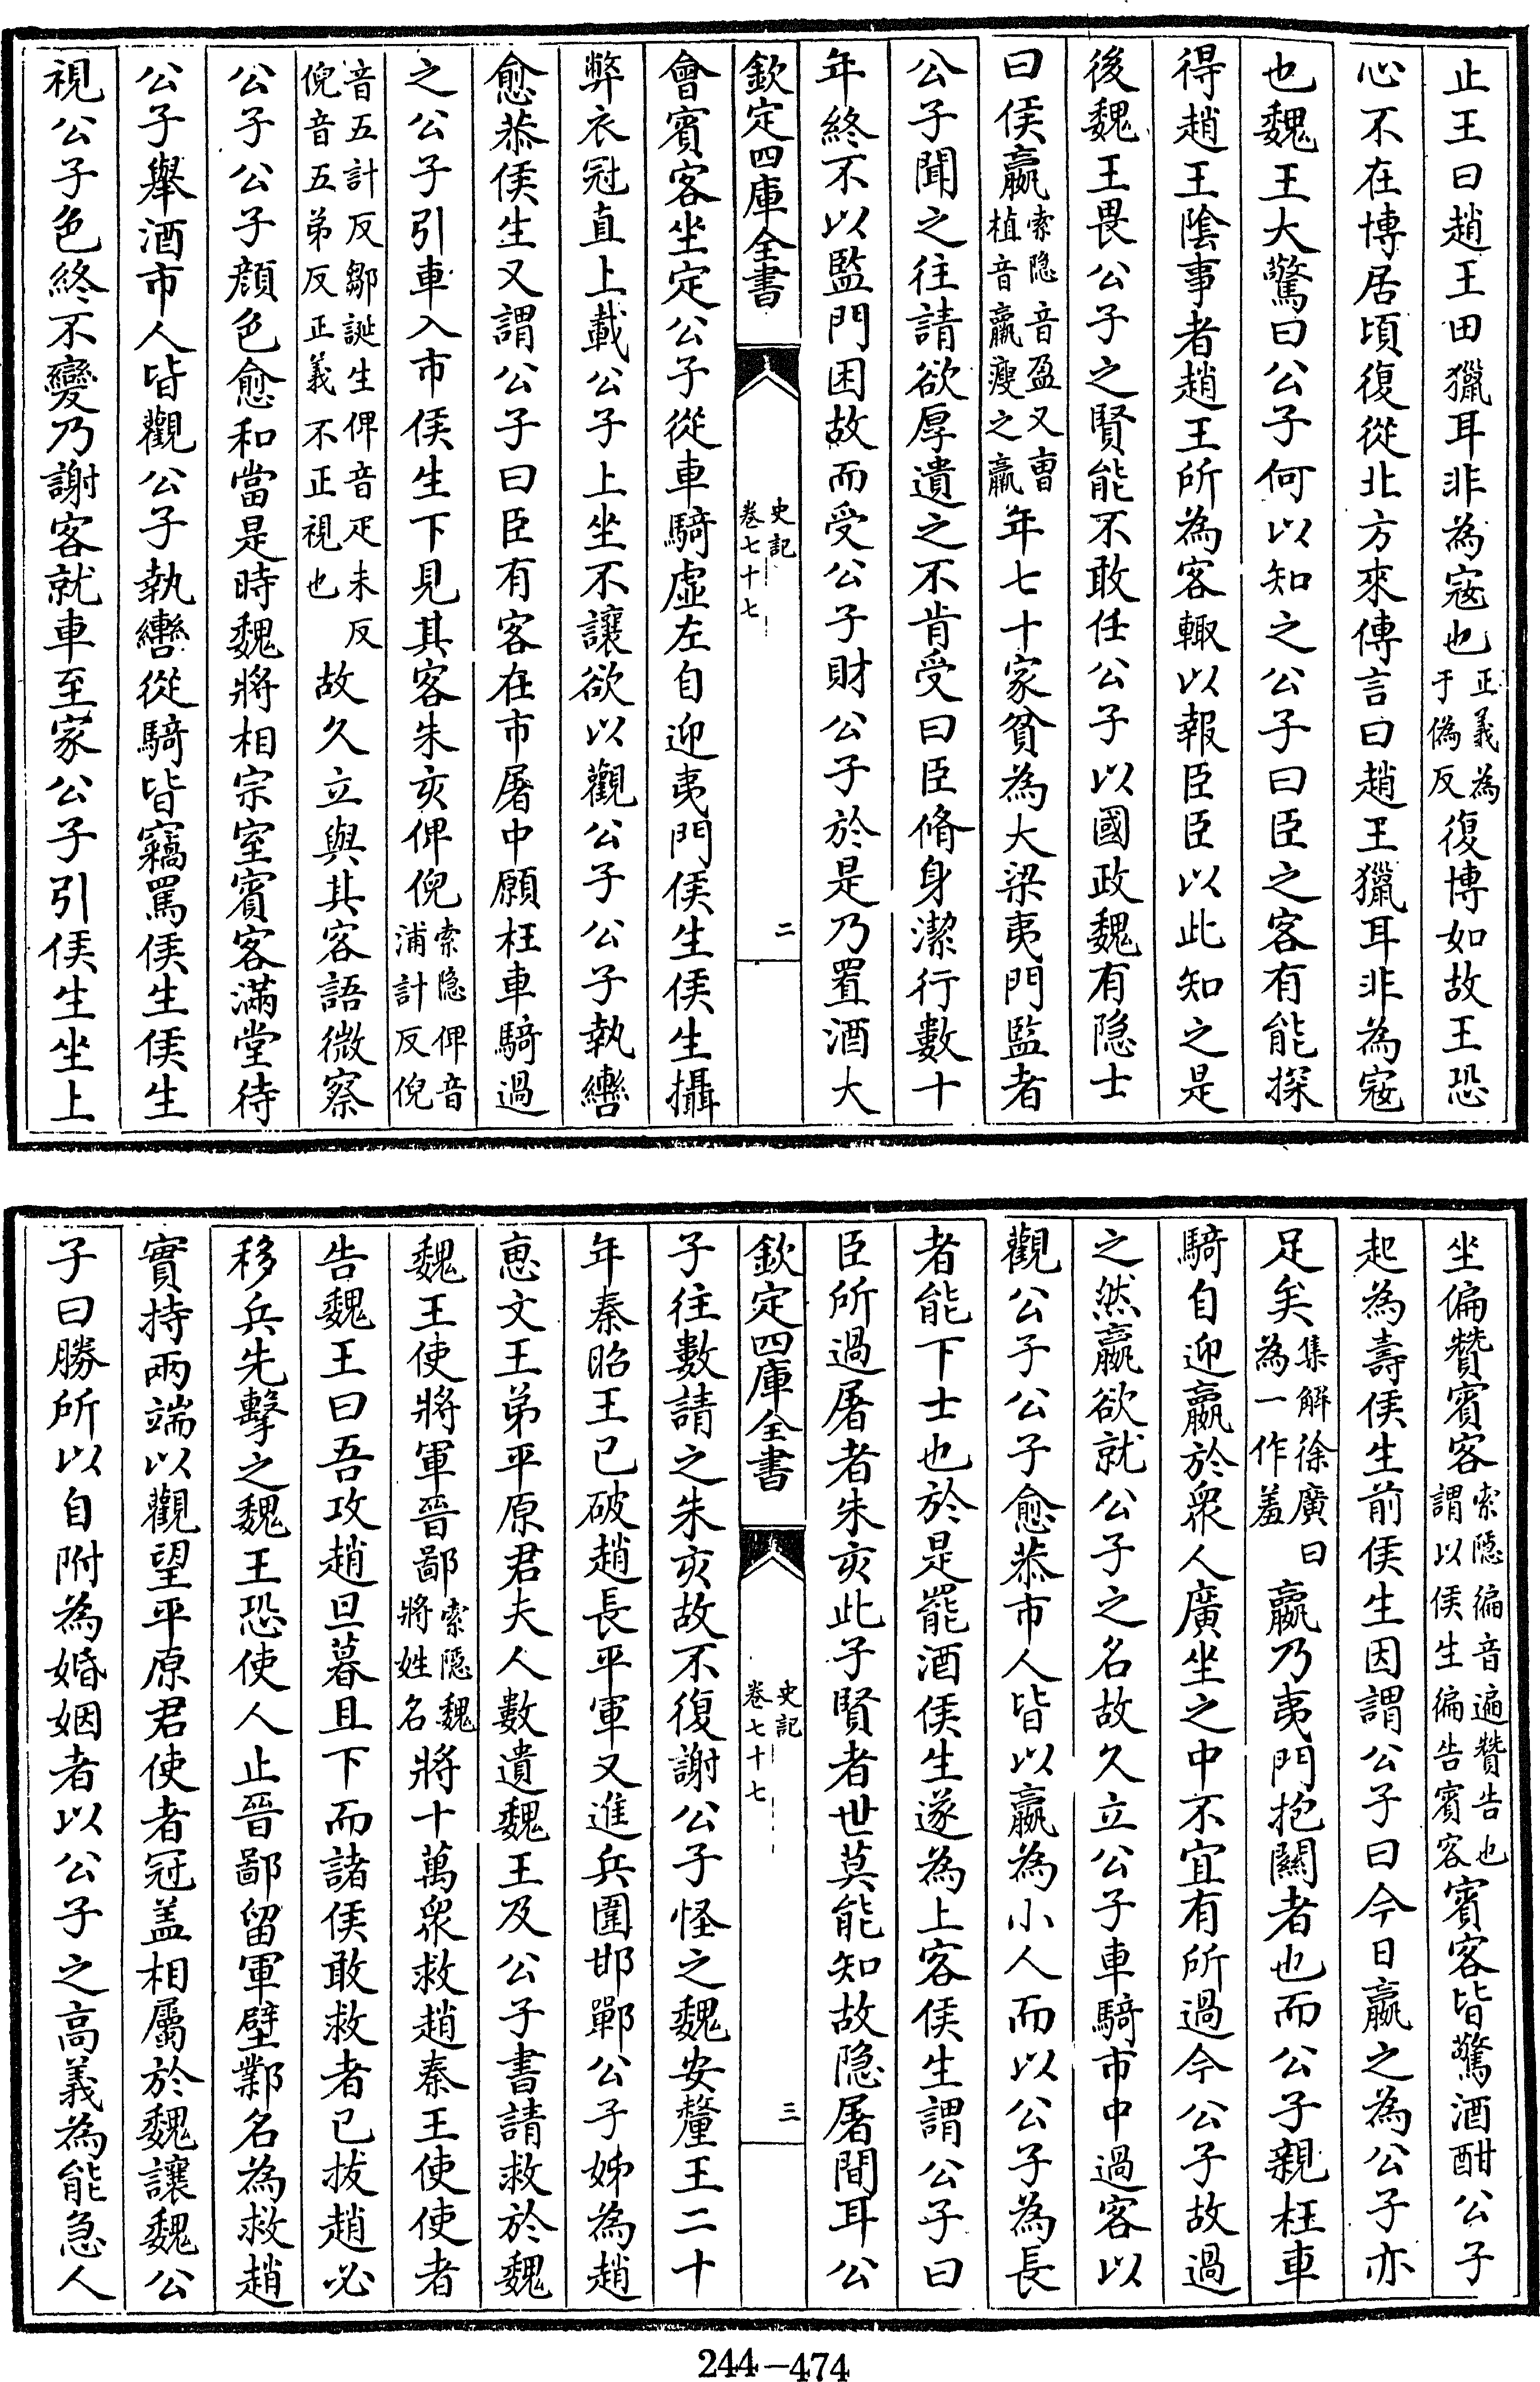 止王曰趙王田獵耳非為寇也正義為于偽反復博如故王恐
心不在博居頃復從北方來傳言曰趙王獵耳非為寇
也魏王大驚曰公子何以知之公子曰臣之客有能探
得趙王陰事者趙王所為客輙以報臣臣以此知之是
後魏王畏公子之賢能不敢任公子以國政魏有隐士
曰侯嬴索隐音盈又曹植音羸瘦之羸年七十家貧為大梁夷門監者
公子聞之往請欲厚遺之不肯受曰臣脩身潔行數十
年終不以監門困故而受公子財公子於是乃置酒大
欽定四庫全書
史記
卷七十七
二
會賓客坐定公子從車騎虛左自迎夷門侯生侯生攝
弊衣冠直上載公子上坐不讓欲以觀公子公子執轡
愈恭侯生又謂公子曰臣有客在市屠中願枉車騎過
之公子引車入市侯生下見其客朱亥俾倪索隐俾音浦計反倪
音五計反鄒誕生俾音疋未反倪音五弟反正義不正視也故久立與其客語微察
公子公子顔色愈和當是時魏將相宗室賓客滿堂待
公子舉酒市人皆觀公子執轡從騎皆竊罵侯生侯生
視公子色終不變乃謝客就車至家公子引侯生坐上
坐徧贊賓客索隱徧音遍贊告也謂以侯生徧告賓客賓客皆驚酒酣公子
起為壽侯生前侯生因謂公子曰今日嬴之為公子亦
足矣集解徐廣曰為一作羞嬴乃夷門抱關者也而公子親枉車
騎自迎嬴於衆人廣坐之中不宜有所過今公子故過
之然嬴欲就公子之名故久立公子車騎市中過客以
觀公子公子愈恭市人皆以嬴為小人而以公子為長
者能下士也於是罷酒侯生遂為上客侯生謂公子曰
臣所過屠者朱亥此子賢者世莫能知故隐屠間耳公
欽定四庫全書
史記
卷七十七
三
子往數請之朱亥故不復謝公子怪之魏安釐王二十
年秦昭王已破趙長平軍又進兵圍邯鄲公子姊為趙
惠文王弟平原君夫人數遺魏王及公子書請救於魏
魏王使將軍晉鄙索隱魏將姓名將十萬衆救趙秦王使使者
告魏王曰吾攻趙旦暮且下而諸侯敢救者已拔趙必
移兵先擊之魏王恐使人止晉鄙留軍壁鄴名為救趙
實持兩端以觀望平原君使者冠盖相屬於魏讓魏公
子曰勝所以自附為婚姻者以公子之高義為能急人
244-474